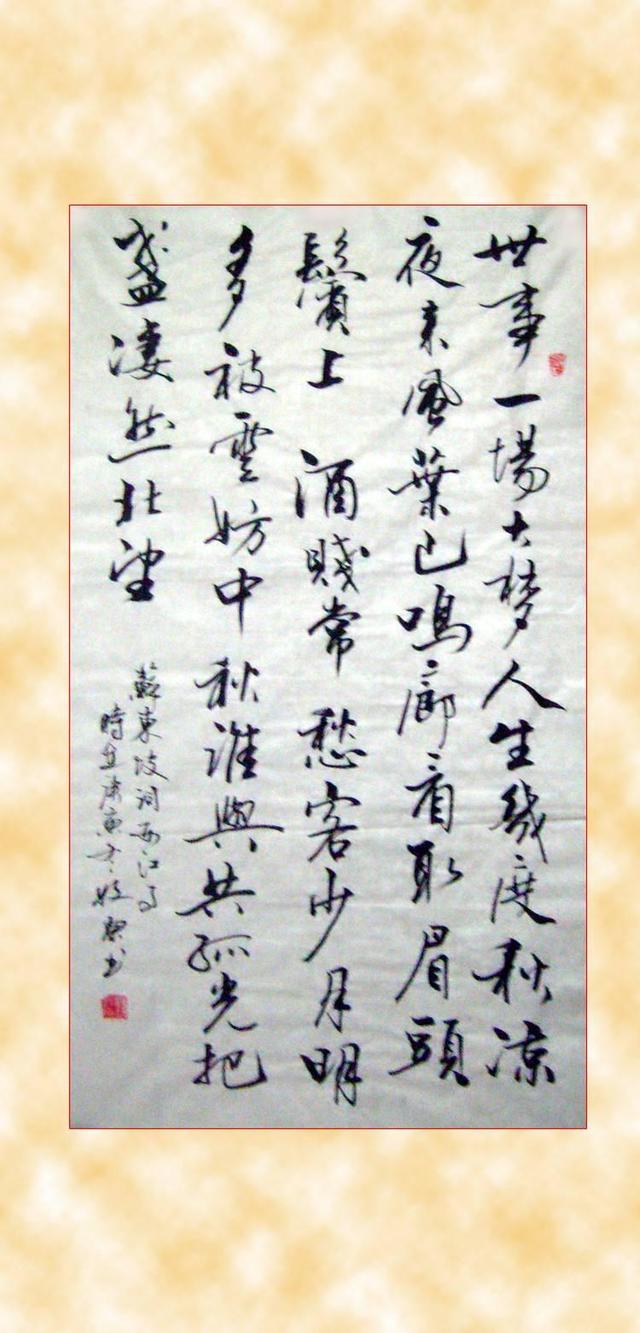 世事一場大梦人生幾度秋凉
夜来風葉已鳴廊看取眉頭
鬢上 酒賤常愁客少月明
多被雲妨中秋誰與共孤光把
盞凄然北望
蘇東坡词西江月
時在庚寅 书